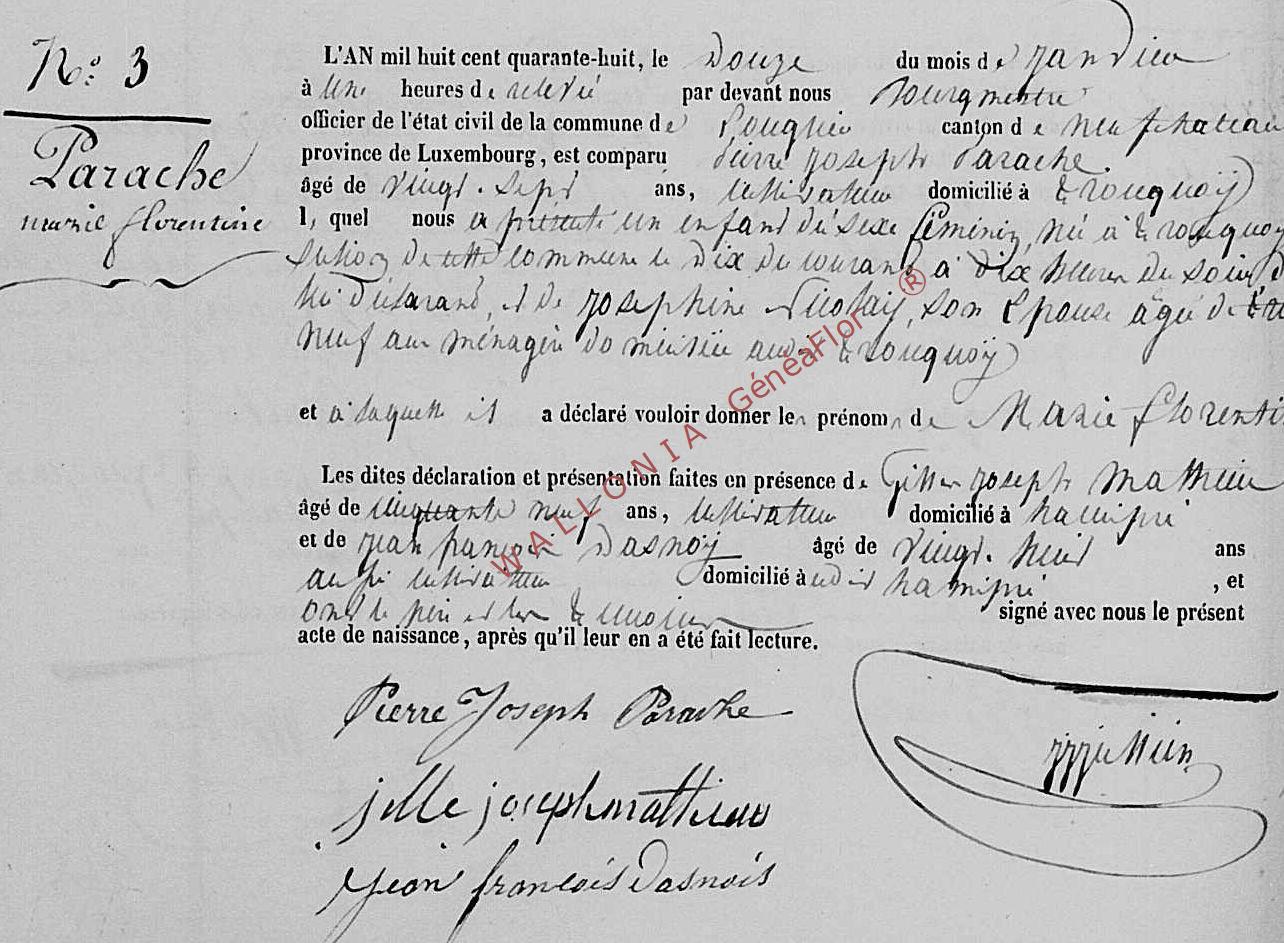 N.° 3
Parache
marie florentine
L'AN mil huit cent quarante-huit, le Douze du mois de Janvier
à une heures de relevé par devant nous Bourgmestre
officier de l'état civil de la commune de canton de neufchateau
province de Luxembourg, est comparu pierre joseph Parache
âgé de vingt-sept ans, cultivateur domicilié à tronquoÿ
l, quel nous a présenté un enfant du sexe féminin, né à tronquoy
section de cette commune le dix du courant à dix heures du soir, de
lui déclarant, et de josephine Nicolaÿ, son épouse âgée de
neuf ans ménagère domiciliée audit tronquoÿ
et à laquelle il a déclaré vouloir donner les prénoms de Marie florentine
Les dites déclaration et présentation faites en présence de joseph Mathieu
âgé de cinquante neuf ans, cultivateur domicilié à hamipré
et de jean françois Dasnoÿ âgé de vingt-huit ans
aussi cultivateur domicilié à udit hamipré, et
ont le père et les témoins signé avec nous le présent
acte de naissance, après qu'il leur en a été fait lecture.
Pierre Joseph Parache
jelle joseph mathieu
jean françois dasnois
WALLONIA GénéaFlor ®